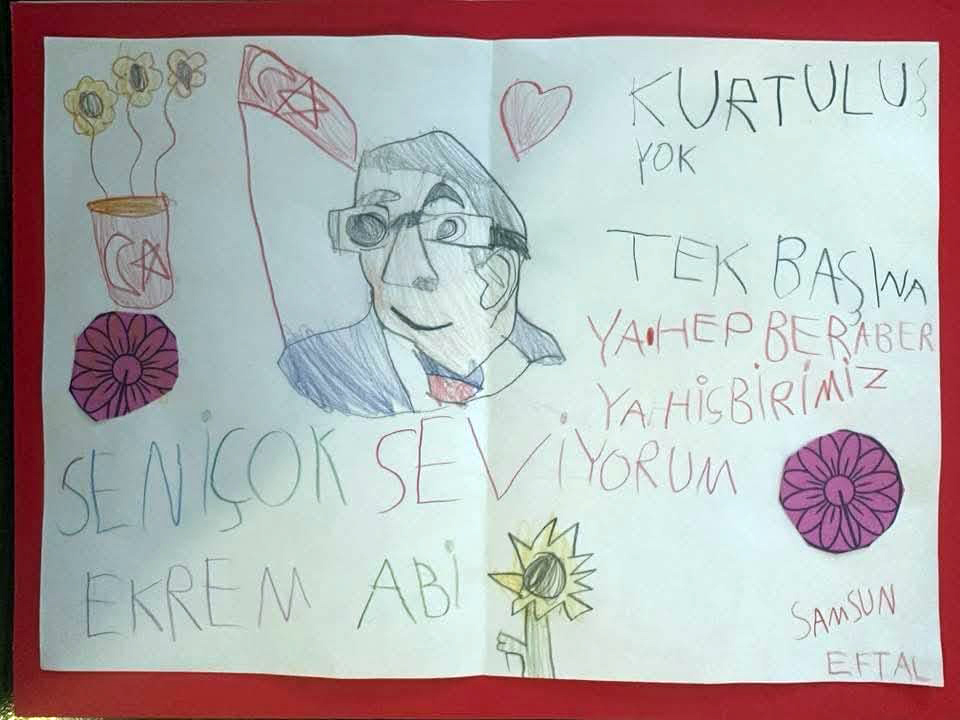 KURTULUŞ
YOK
TEK BAŞINA
YA HEP BERABER
YA HİÇBİRİMİZ
SENİÇOK SEVİYORUM
EKREM ABİ
SAMSUN
EFTAL